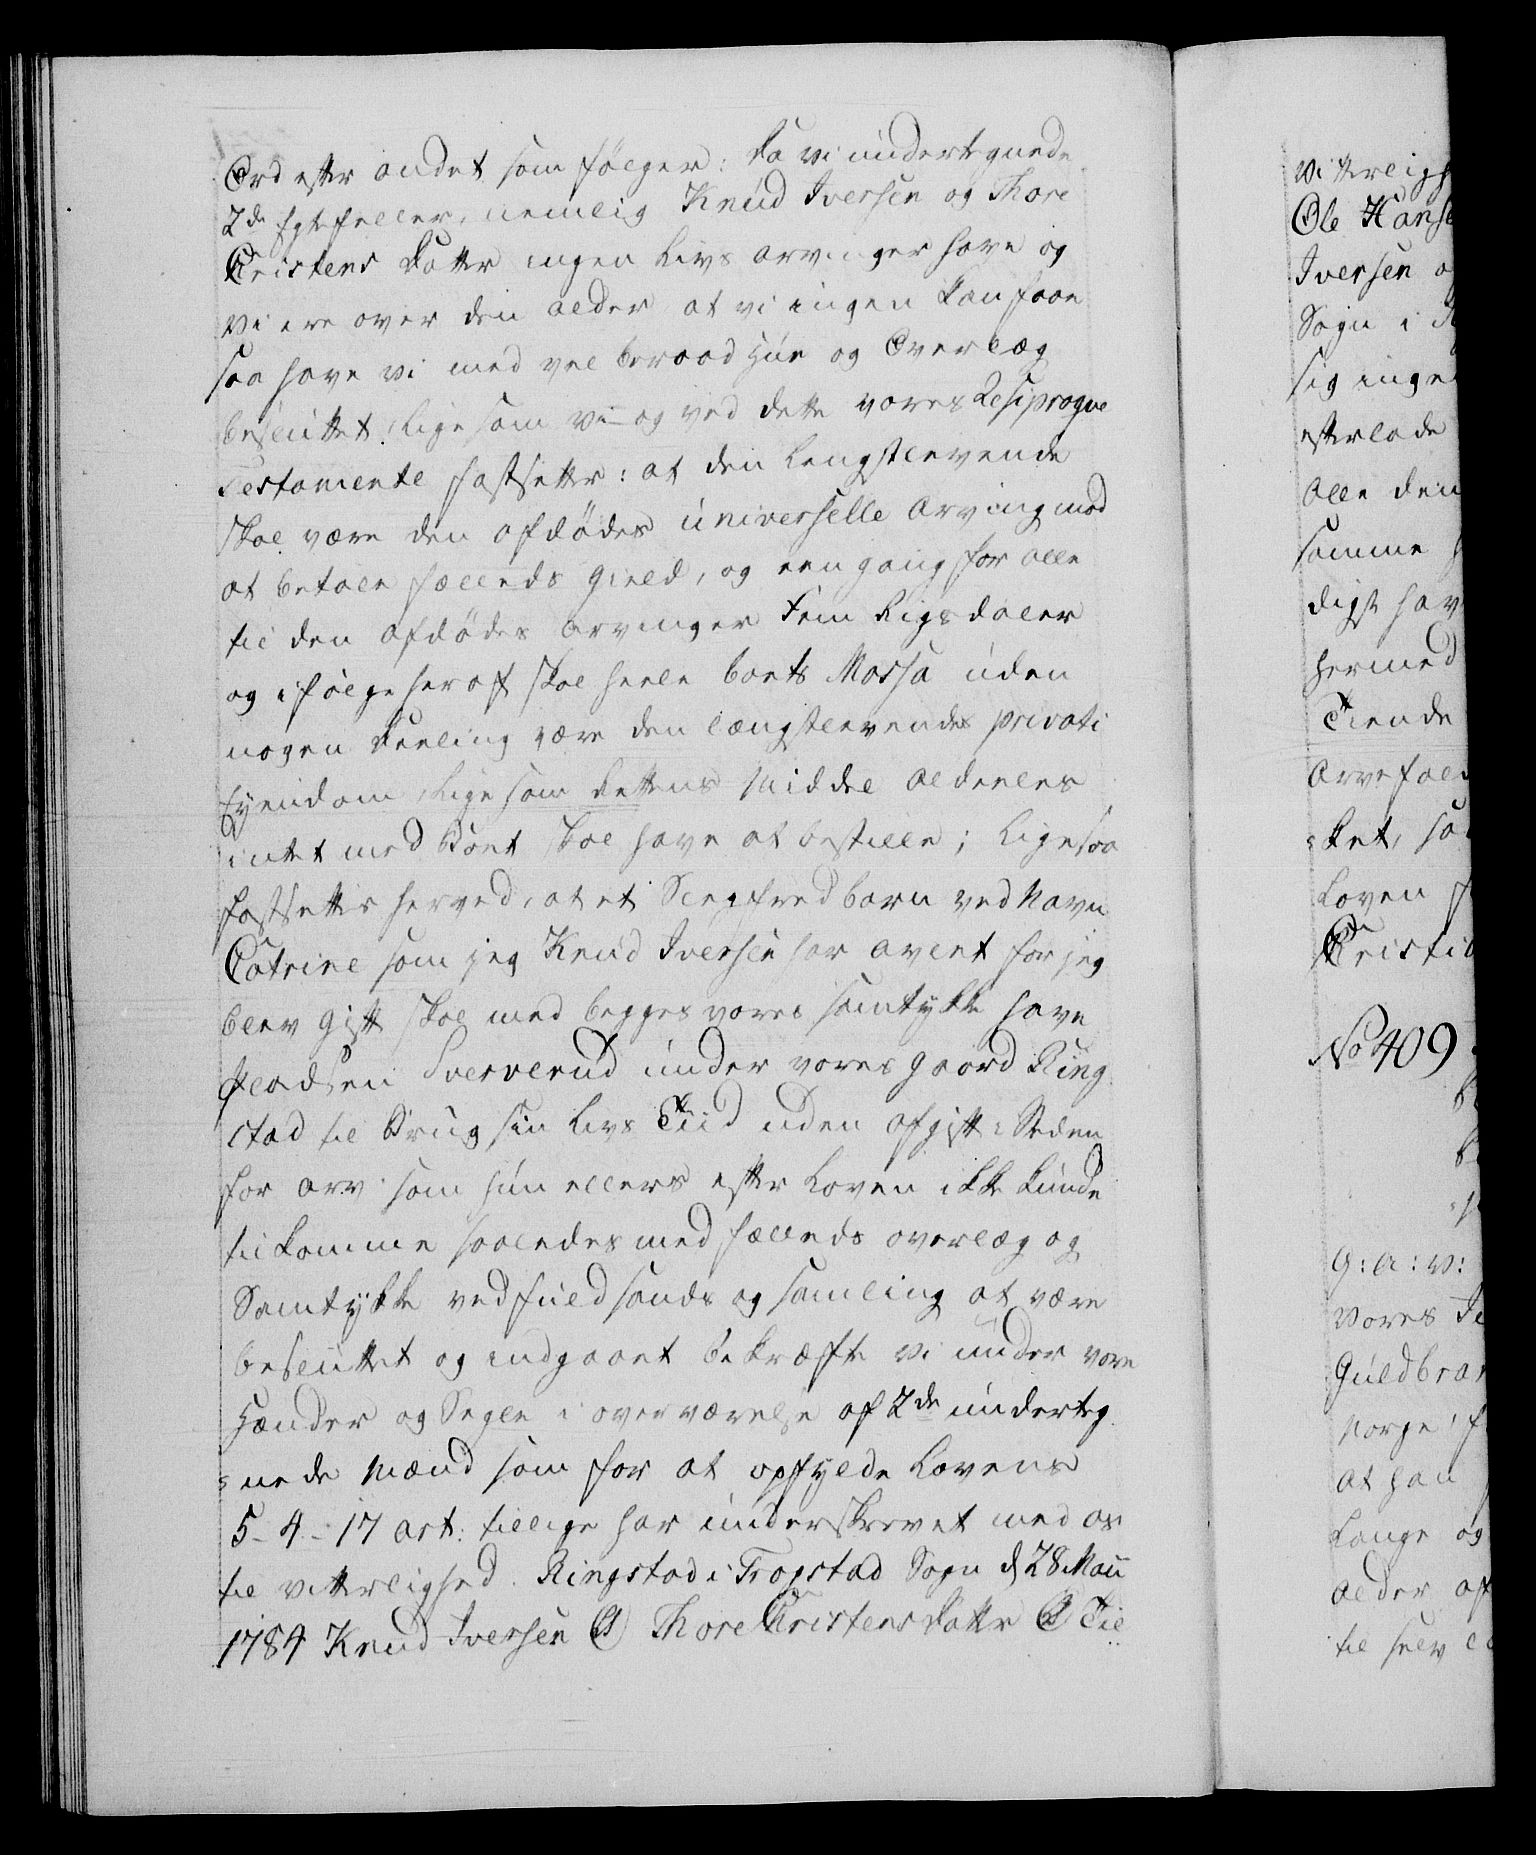 Ord efter andet som følger: Da vi undertegnede
2de Egtefeller, nemlig Knud Iversen og Thore
Christens Datter ingen Livs Arvinger have og
vi ere over den alder at vi ingen kan faae
saa have vi med vel beraad Hue og Overlæg
besluttet, ligesom vi og ved dette vores Resiproqve
Testamente fastsetter: at den lengstlevende
skal være den afdødes universelle Arving mod
at betale fælleds Gield, og een gang for alle
til den afdødes Arvinger Fem Rigsdaler
og i følge heraf skal heele boets Massa uden
nogen Deeling være den længstlevendes privati
Eyendom, ligesom Rettens Middel aldeeles
intet med Boet skal have at bestille; Ligesaa
fastsettes herved, at et Slegfredbarn ved Navn
Catrine som jeg Knud Iversen har avlet før jeg
blev Gift skal med begges vores samtykke have
Pladsen Sververud under vores gaard Ring
stad til Brug sin Livs Tiid uden afgift i Steden
for arv som hun ellers efter Loven ikke kunde
tilkomme saaledes med fælleds overlæg og
Samtykke ved fuld sands og samling at være
besluttet og indgaaet bekræfte vi under vore
Hænder og Segle i overværelse af 2de underteg
nede Mænd som for at opfylde Lovens
5-4-17 art: tillige har underskrevet med os
til vitterlighed. Ringstad i Trogstad Sogn d 28 Maii
1784 Knud Iversen Thore Christens Datter Til
vitterligh
Ole Hanse
Iversen o
Sogn i
sig inge
efterlade
Alle den
samme
digst hav
hermed
Tiende
Arvefald
ket, sa
Loven
Christia
No 409
G: A: V:
Vores
Guldbran
Norge, f
at han
Lange og
alder af
til selv